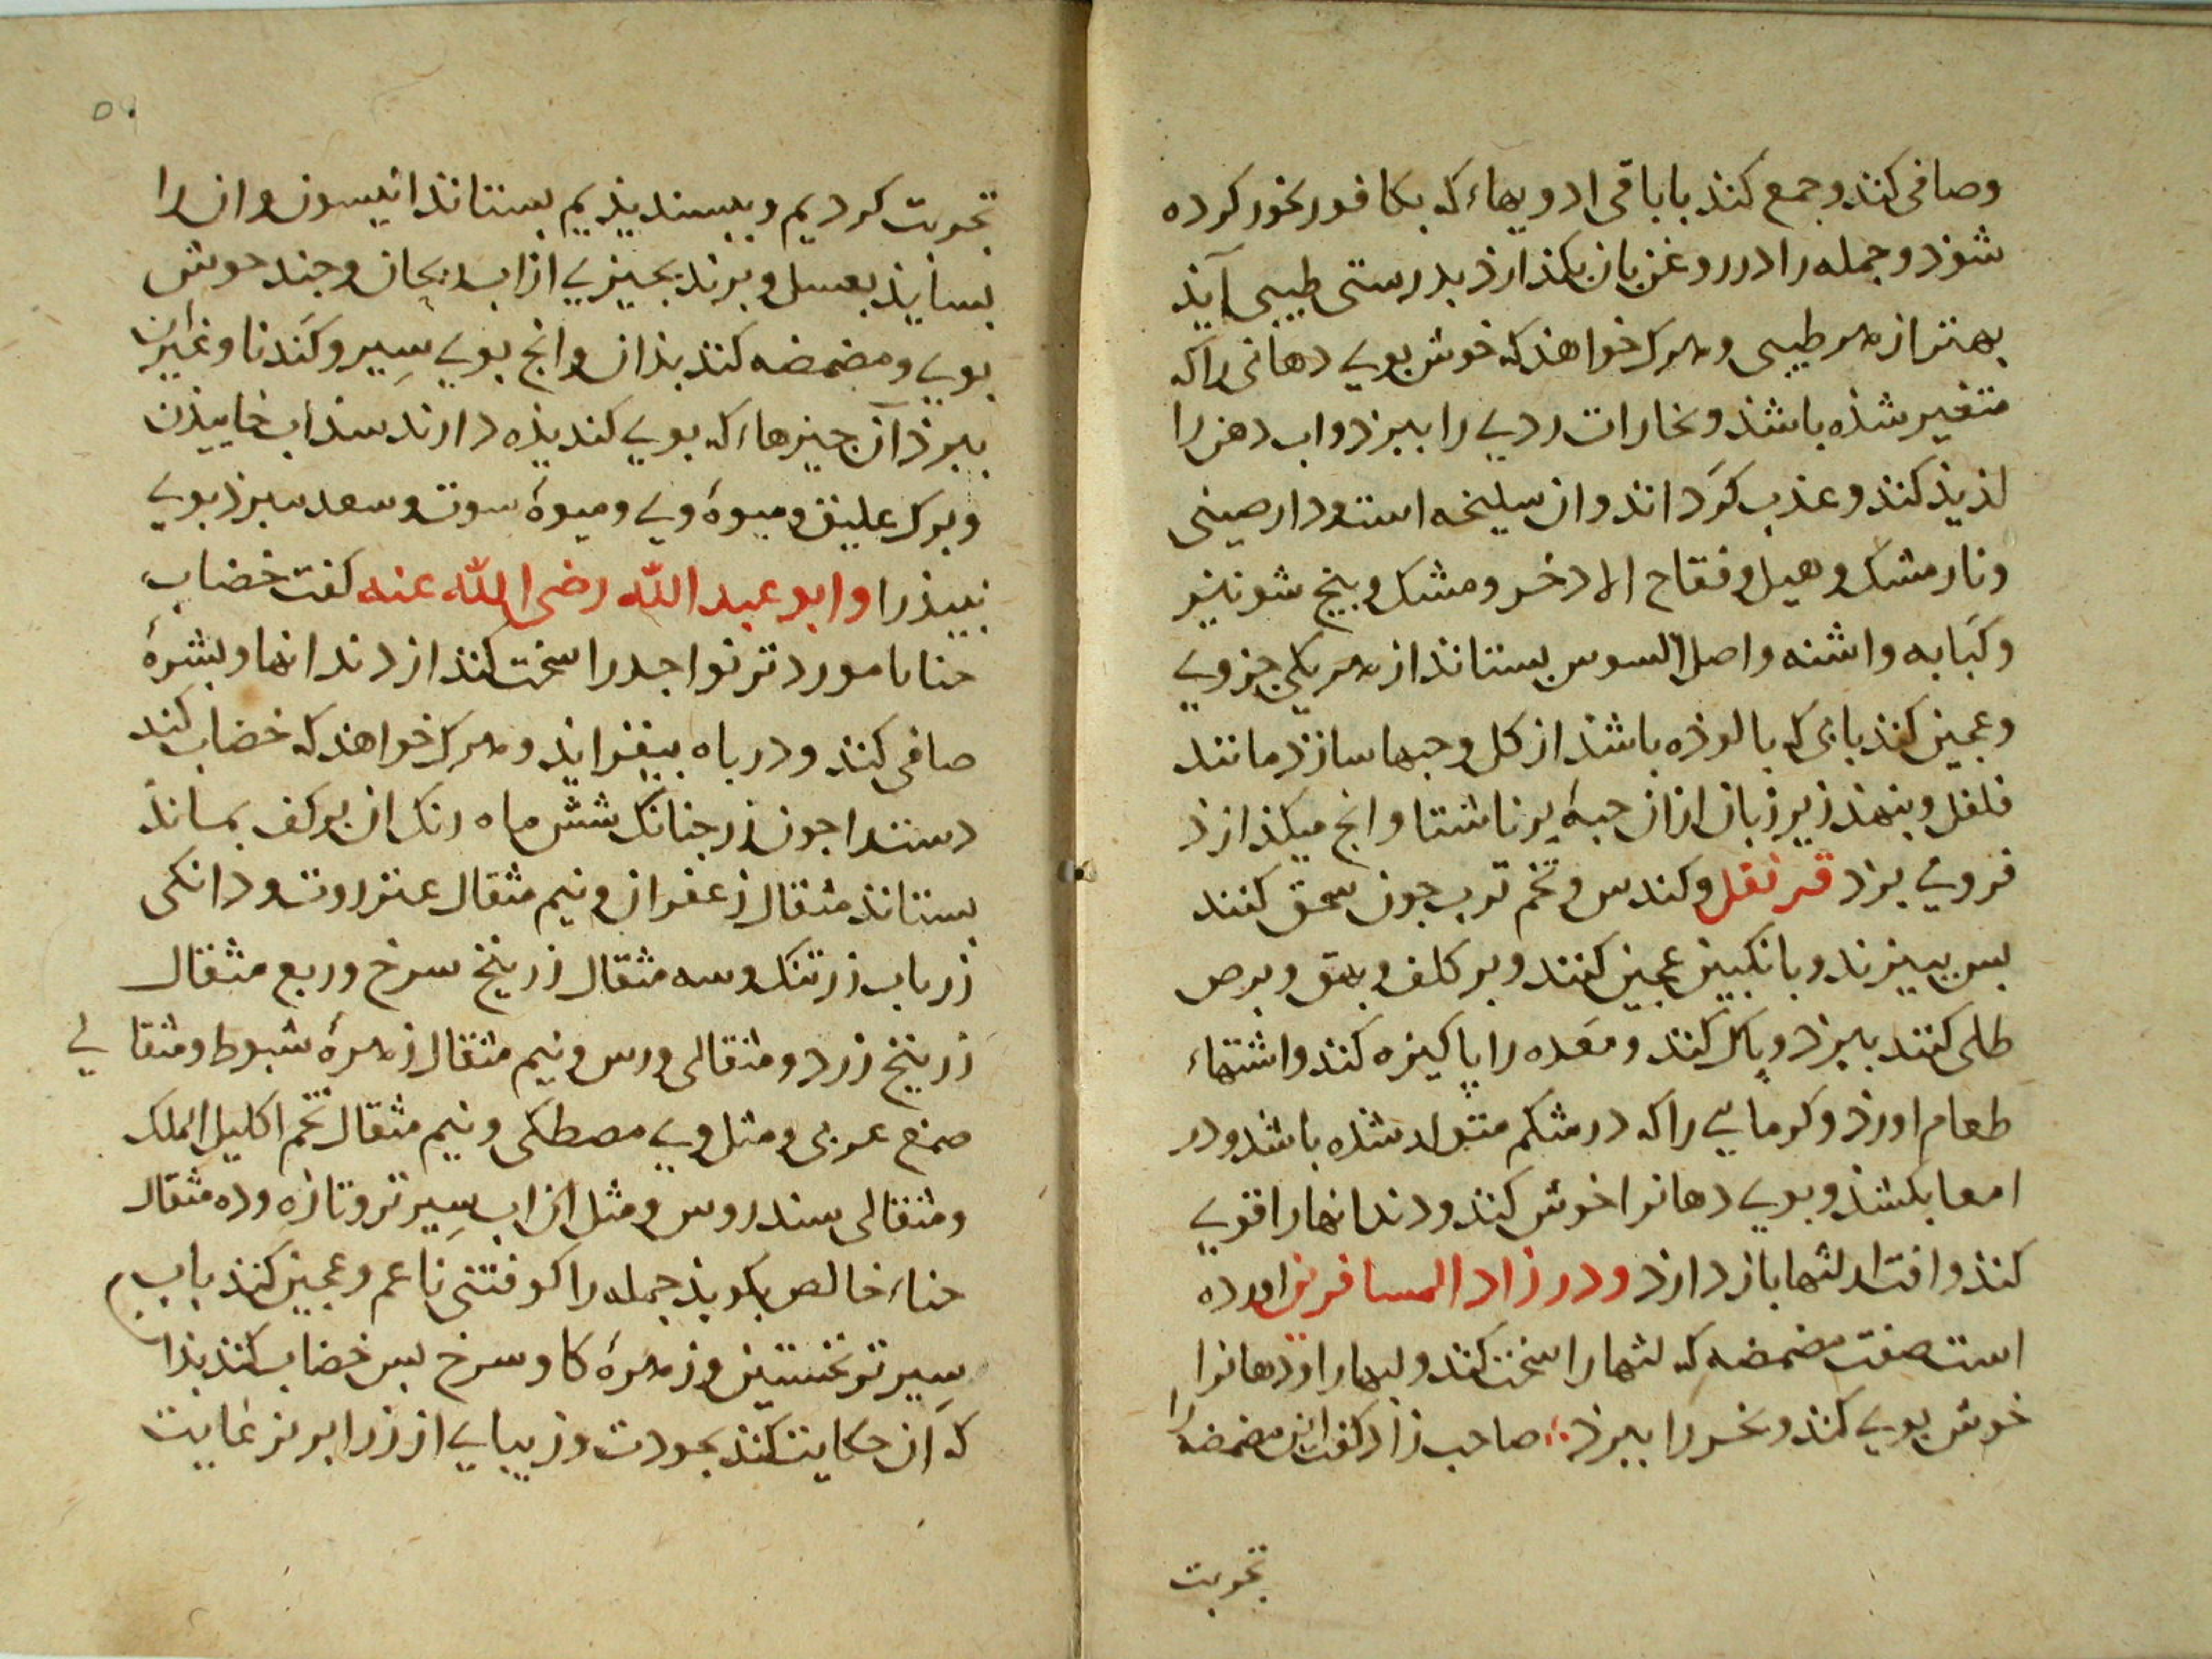 وصافی کنند و جمع کنند با باقی ادویهاء که بکافور بخور کرده
شوذ و جمله را در روغن بان بکذارذ بدرستی طیبی آیذ
بهتر از هر طیبی و هرک خواهذ که خوش بویی دهانی را که
متغیر شذه باشذ و بخارات ردیی را ببرذ و اب دهن را
لذیذ کنذ و عذب کرداند و ان سلیخه است و دارصینی
و نارمشک و هیل و فقاح الادخر و مشک و بیخ شونیز
و کبابه و اشنه و اصل السوس بستانذ از هر یکی جزویی
و عجین کنذ بابی که بالوذه باشذ از کل و حبها سازذ مانند
فلفل و بنهذ زیر زبان از ان حبهٔ بر ناشتا و انج میکذازذ
فرویی برذ قرنفل و کندس و تخم ترب جون سحق کنند
بس ببیزند و بانکبین عجین کنند و بر کلف و بهق و برص
طلی کنند ببرذ و پاک کند و معده را پاکیزه کند و اشتهاء
طعام اورذ و کرمایی را که در شکم متولد شذه باشذ و در
امعا بکشذ و بویی دهانرا خوش کنذ و دندانها را قویی
کنذ و افت از لثها باز دارذ و در زاد المسافرین اورده
است صفت مضمضه که لثها را سخت کنذ و لبها را و دهانرا
خوش بویی کنذ و بخر را ببرذ صاحب زاد کفت این مضمضه را
تجربت
تجربت کردیم و ببسندیذیم بستانذ انیسون و ان را
بسایذ بعسل و برند بجیزیی از اب ریحان و جند خوش
بویی و مضمضه کنذ بذان و انج بویی سیر و کندنا و غیر ان
ببرذ آن جیزهاء که بویی کندیذه دارند سنداب خاییذن
و برک علیق و میوهٔ ویی و میوهٔ سوت و سعد سبرذ بویی
نبیذ را و ابو عبد الله رضی الله عنه کفت خضاب
حنا با مورد تر نواجد را سخت کنذ از دندانها و بشرهٔ
صافی کنذ و در باه بیفزایذ و هرک خواهذ که خضاب کند
دست را جون زر جنانک شش ماه رنک ان بر کف بمانذ
بستانذ مثقال زعفران و نیم مثقال عنزروت و دانکی
زرباب زرتنک و سه مثقال زرنیخ سرخ و ربع مثقال
زرنیخ زرد و مثقالی ورس و نیم مثقال زهرهٔ شبوط و مثقالی
صمغ عربی و مثل ویی مصطکی و نیم مثقال تخم اکلیل الملک
و مثقالی سندروس و مثل ان اب سیر تر و تازه و ده مثقال
حناء خالص بکوبذ جمله را کوفتنی ناعم و عجین کنذ باب
سیر تر نخستین و زهرهٔ کاو سرخ بس خضاب کنذ بذان
که آن حکایت کنذ بجودت و زیبایی از زر ابریز غایت